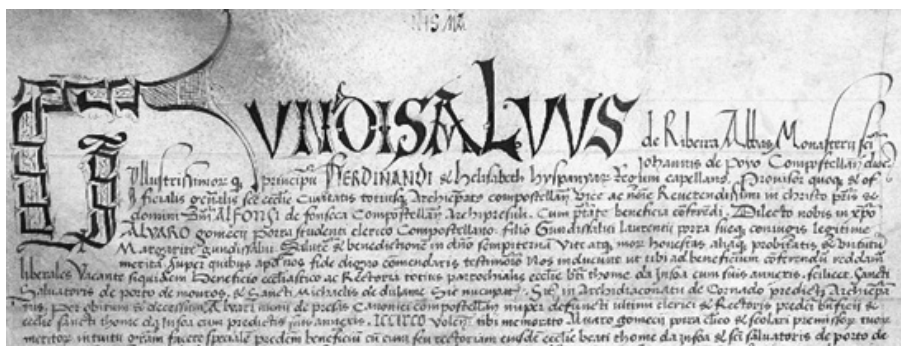 IHS Ma
GUNDISALVVS de Ribeira Abbas Monasterii sci
Johannis de Poyo Compostellan dioc
Illustrissimor q principu FERDINANDI & Helisabeth hyspanyar capellan Provisor quoq & of
ficialis genalis sce ecclie Civitatis totiusq Archiepatº compostellan vice ac noie Reverendissimi in christo pris
domini Dm ALFONSI de fonseca Compostellan Archipresuli Cum ptate beneficia coferedi Dilecto nobis in xpo
ALVARO gomecii porra studenti clerico Compostellano filio Gundissalui Laurentii porra sueq coniugis legitime
Margarite gundissalui Salute & benedictione in dno sempiterna Vite atq mor honestas aliaq probitatis & virtutu
merita super quibus apd nos fide digno comendaris testimonio Nos inducunt ut tibi ad beneficium coferendu reddam
liberales Vacante siquidem beneficio ecclastico ac Rectoria totius parrochialis ecclie bti thome da Insoa cum suis annexis scilicet Sancti
Salvatoris de porto de mouros & Sancti Michaelis de dulame Sic nucupatᵗ Sitᵉ in Archidiaconatu de Cornado predicti Archiepa
tus per obitum & decessum Alvari nuni de preses Canonici compostellan nuper defuncti ultimi clerici & Rectoris predci bnficii &
ecclie sancti thome da Insoa cum predictis suis annexis volens tibi memorato Alvaro gomecii porra clico & scolari premissor tuor
meritor intuitu gram facere speciale predcm beneficiu cu cura seu rectoriam eiusde ecclie beati thome da Insoa & sci salvatoris de porto de